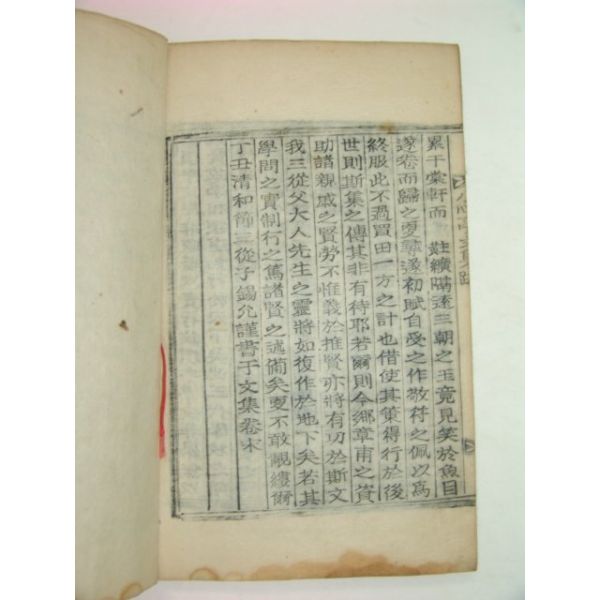 累干棠軒而 黈纊隔遠三朝之玉竟見笑於魚目
遂卷而歸之更尋遂初賦自受之作敬符之佩以爲
終服此不過買田一方之計也借使其策得行於後
世則斯集之傳其非有待耶若爾則今鄉章甫之資
助諸親戚之賢勞不惟義於推賢亦將有功於斯文
我三從父大人先生之靈將如復作於地下矣若其
學問之實制行之篤諸賢之述備矣更不敢覼縷爾
丁丑清和節三從子錫允謹書于文集卷末